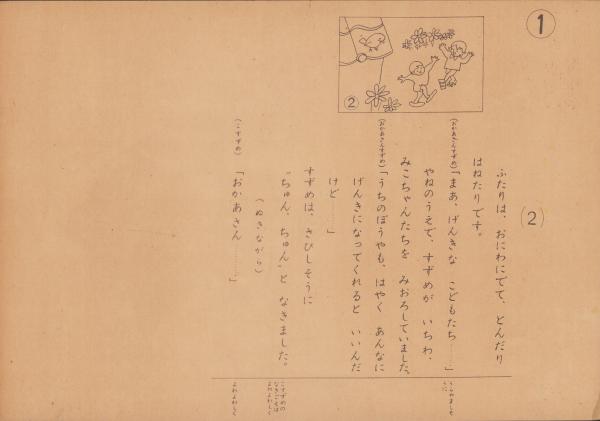 1
2
(2)
ふたりは、おにわにでて、とんだり
はねたりです。
(おかあさんすずめ)「まあ、げんきな こどもたち……」
やねのうえで、すずめが いちわ、
みこちゃんたちを みおろしていました。
(おかあさんすずめ)「うちのぼうやも、はやく あんなに
げんきになってくれると いいんだ
けど……」
すずめは、さびしそうに
"ちゅん、ちゅん"と なきました。
(ぬきながら)
(こすずめ)「おかあさん………」
うらやましそ
うに
こすずめの
なきごえは
よわよわしく
よわよわしく